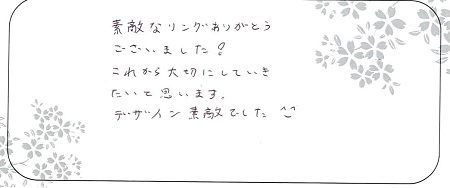 素敵なリングありがとう
ございました!
これから大切にしていき
たいと思います。
デザイン素敵でした ^^